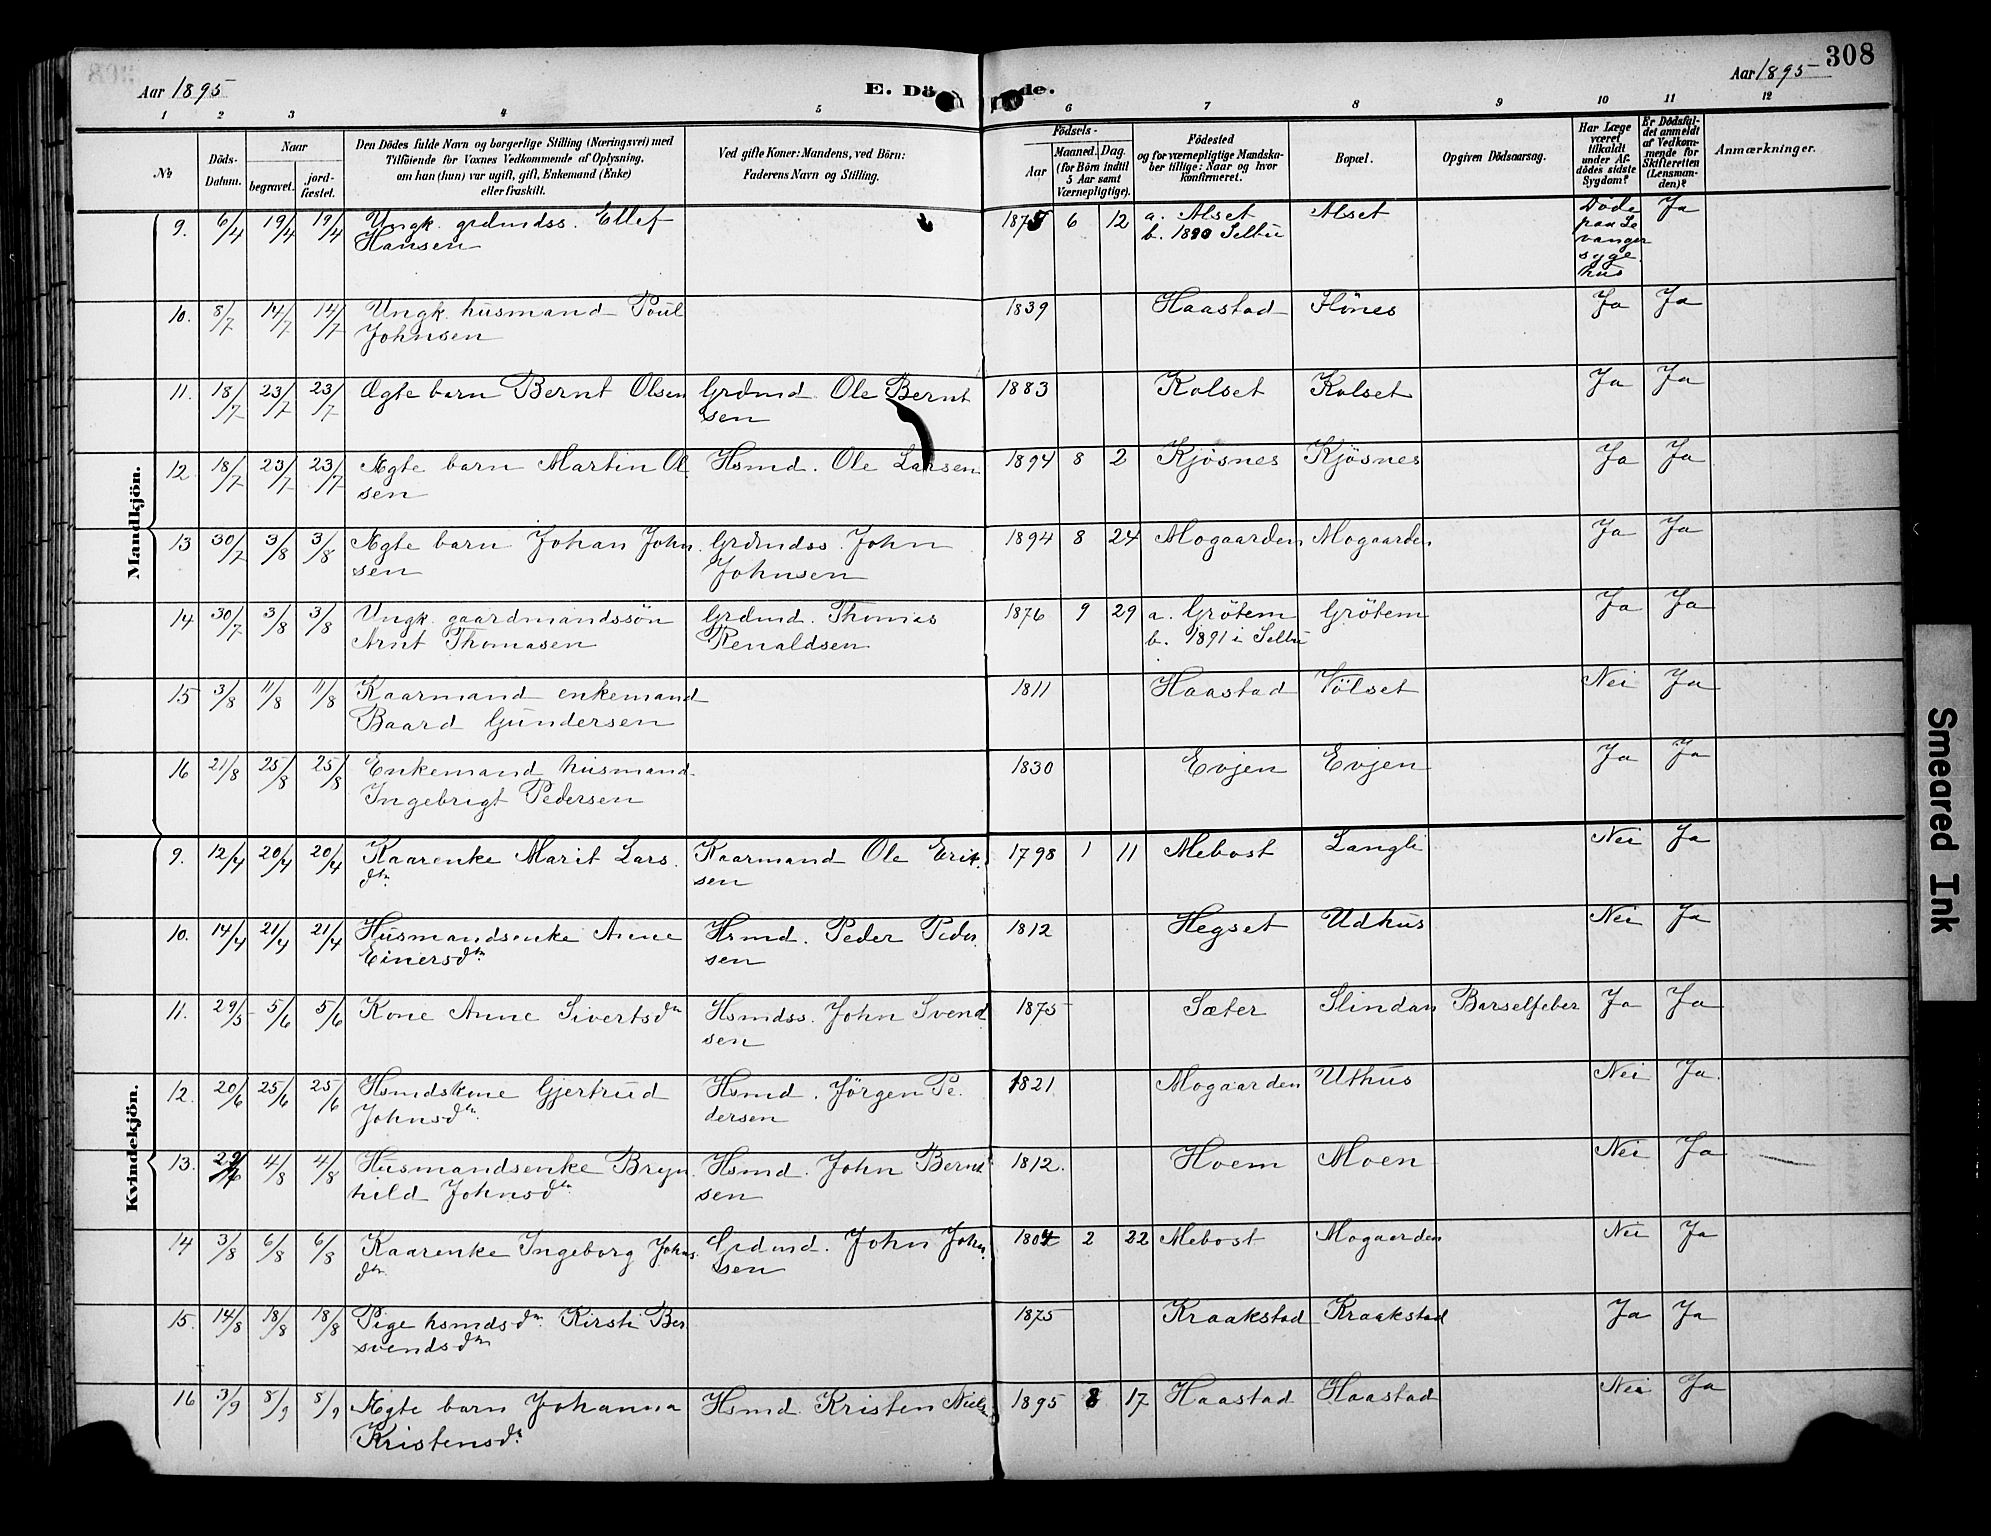 308
Aar 1895
E. Dö de.
Aar 1895
1 2 3 4 5 6 7 8 9 10 11 12
№
Döds-
Datum.
Naar
begravet.
jord-
fæstet.
Den Dödes fulde Navn og borgerlige Stilling (Næringsvei) med
Tilföiende for Voxnes Vedkommende af Oplysning,
om han (hun) var ugift, gift, Enkemand (Enke)
eller fraskilt.
Ved gifte Koner: Mandens, ved Börn:
Faderens Navn og Stilling.
Födsels-
Aar
Maaned. Dag.
(for Börn indtil
5 Aar samt
Værnepligtige).
Födested
og for værnepligtige Mandska-
ber tillige: Naar og hvor
konfirmeret.
Bopæl.
Opgiven Dödsaarsag.
Har Læge
været
tilkaldt
under Af-
dödes sidste
Sygdom?
Er Dödsfal-
det anmeldt
af Vedkom-
mende for
Skifteretten
(Lensman-
den)?
Anmærkninger.
Mandkjön.
9. 6/4 19/4 19/4 Ungk. grdmdss. Ellef 1875 6 12 a. Alset Alset Döde Ja
Hansen b. 1890 Selbu paa Le
vanger
syge
hus
10. 8/7 14/7 14/7 Ungk. husmand Poul 1839 Haastad Hönes Ja Ja
Johnsen
11. 18/7 23/7 23/7 Ægte barn Bernt Olsen Grdmd. Ole Bernt 1883 Kolset Kolset Ja Ja
sen
12 18/7 23/7 23/7 Ægte barn Martin Ol Hsmd. Ole Larsen 1894 8 2 Kjösnes Kjösnes Ja Ja
sen
13 30/7 3/8 3/8 Ægte barn Johan John Grdmdss. John 1894 8 24 Mogaarden Mogaarden Ja Ja
sen Johnsen
14 30/7 3/8 3/8 Ungk. gaardmandssön Grdmd. Thomas 1876 9 29 a. Grötem Grötem Ja Ja
Arnt Thomasen Renaldsen b. 1891 i Selbu
15 3/8 11/8 11/8 Kaarmand enkemand 1811 Haastad Völset Nei Ja
Baard Gundersen
16 21/8 25/8 25/8 Enkemand husmand 1830 Evjen Evjen Ja Ja
Ingebrigt Pedersen
Kvindekjön.
9. 12/4 20/4 20/4 Kaarenke Marit Lars. Kaarmand Ole Erik. 1798 1 11 Mebost Langli Nei Ja
dtr. sen
10. 14/4 21/4 21/4 Husmandsenke Anne Hsmd. Peder Peder 1812 Hegset Udhus Nei Ja
Einersdtr. sen
11. 29/5 5/6 5/6 Kone Anne Sivertsdtr Hsmdss. John Svend 1875 Sæter Slindan Barselfeber Ja Ja
sen
12. 20/6 25/6 25/6 Hsmdskone Gjertrud Hsmd. Jörgen Pe. 1821 Mogaarden Uthus Nei Ja.
Johnsdtr. dersen
13. 29/7 4/8 4/8 Husmandsenke Bryn Hsmd. John Bernt 1812. Hoem Moen Nei Ja
hild Johnsdtr. sen
14 3/8 6/8 6/8 Kaarenke Ingeborg Johns. Grdmd. John John. 1804 2 22 Mebost Mogaarden Nei Ja
dtr. sen
15. 14/8 18/8 18/8 Pige hsmdsdtr. Kirsti Ber 1875 Kraakstad Kraakstad Ja Ja
svendsdtr
16 3/9 8/9 8/9 Ægte barn Johanna Hsmd. Kristen Niels 1895 8 17 Haastad Haastad Nei Ja
Kristensdr.
Smeared Ink